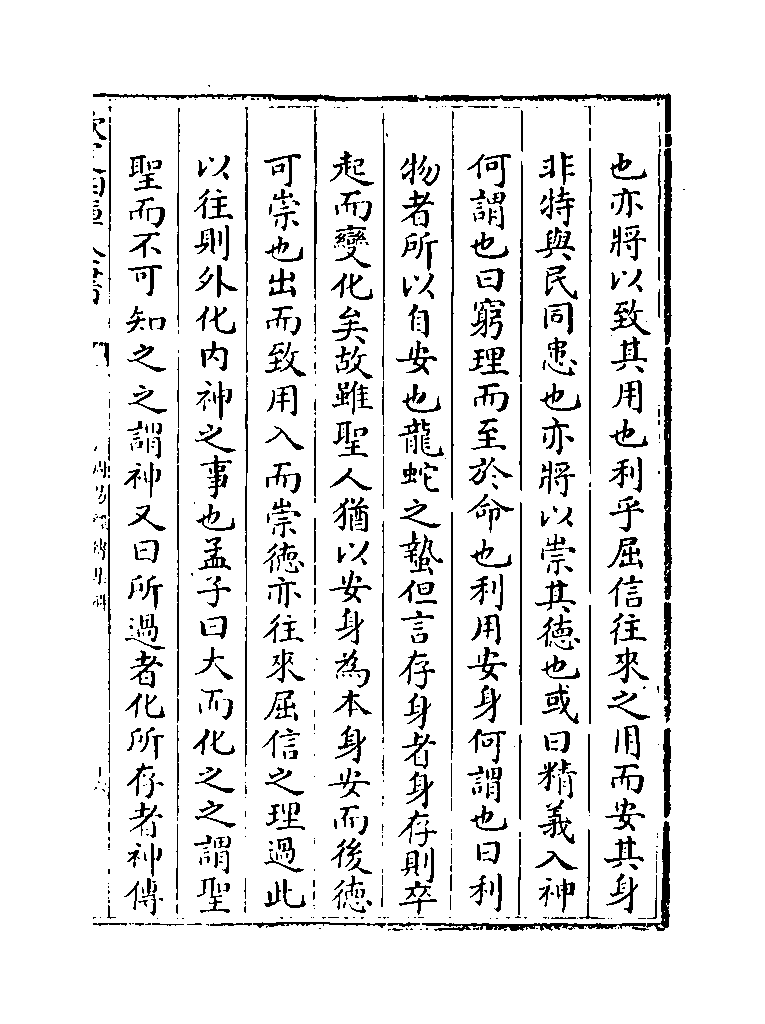 也亦將以致其用也利乎屈信往來之用而安其身
非特與民同患也亦將以崇其徳也或曰精義入神
何謂也曰窮理而至於命也利用安身何謂也曰利
物者所以自安也龍蛇之蟄但言存身者身存則卒
起而變化矣故雖聖人猶以安身為本身安而後徳
可崇也出而致用入而崇徳亦往來屈信之理過此
以往則外化内神之事也孟子曰大而化之之謂聖
聖而不可知之之謂神又曰所過者化所存者神傳